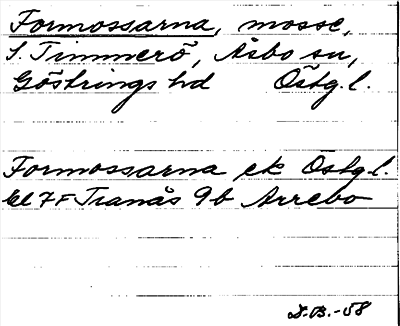 Formossarna, mosse,
S. Timmerö, Åsbo sn,
Göstrings hd Östg.l.
Formossarna ek Östg.l.
bl 7F Tranås 9b Arrebo
D.B.-58